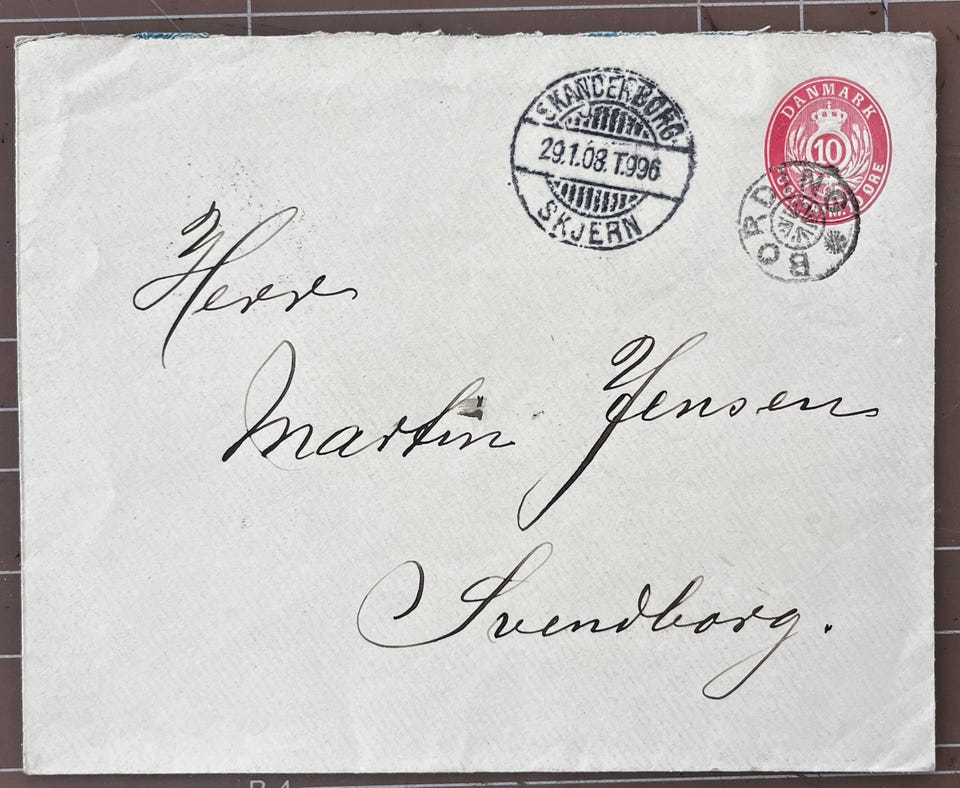 SKANDERBORG
29.1.08. T.996
SKJERN
DANMARK
10
ØRE
BORDING
Herr
Martin Jensen
Svendborg.